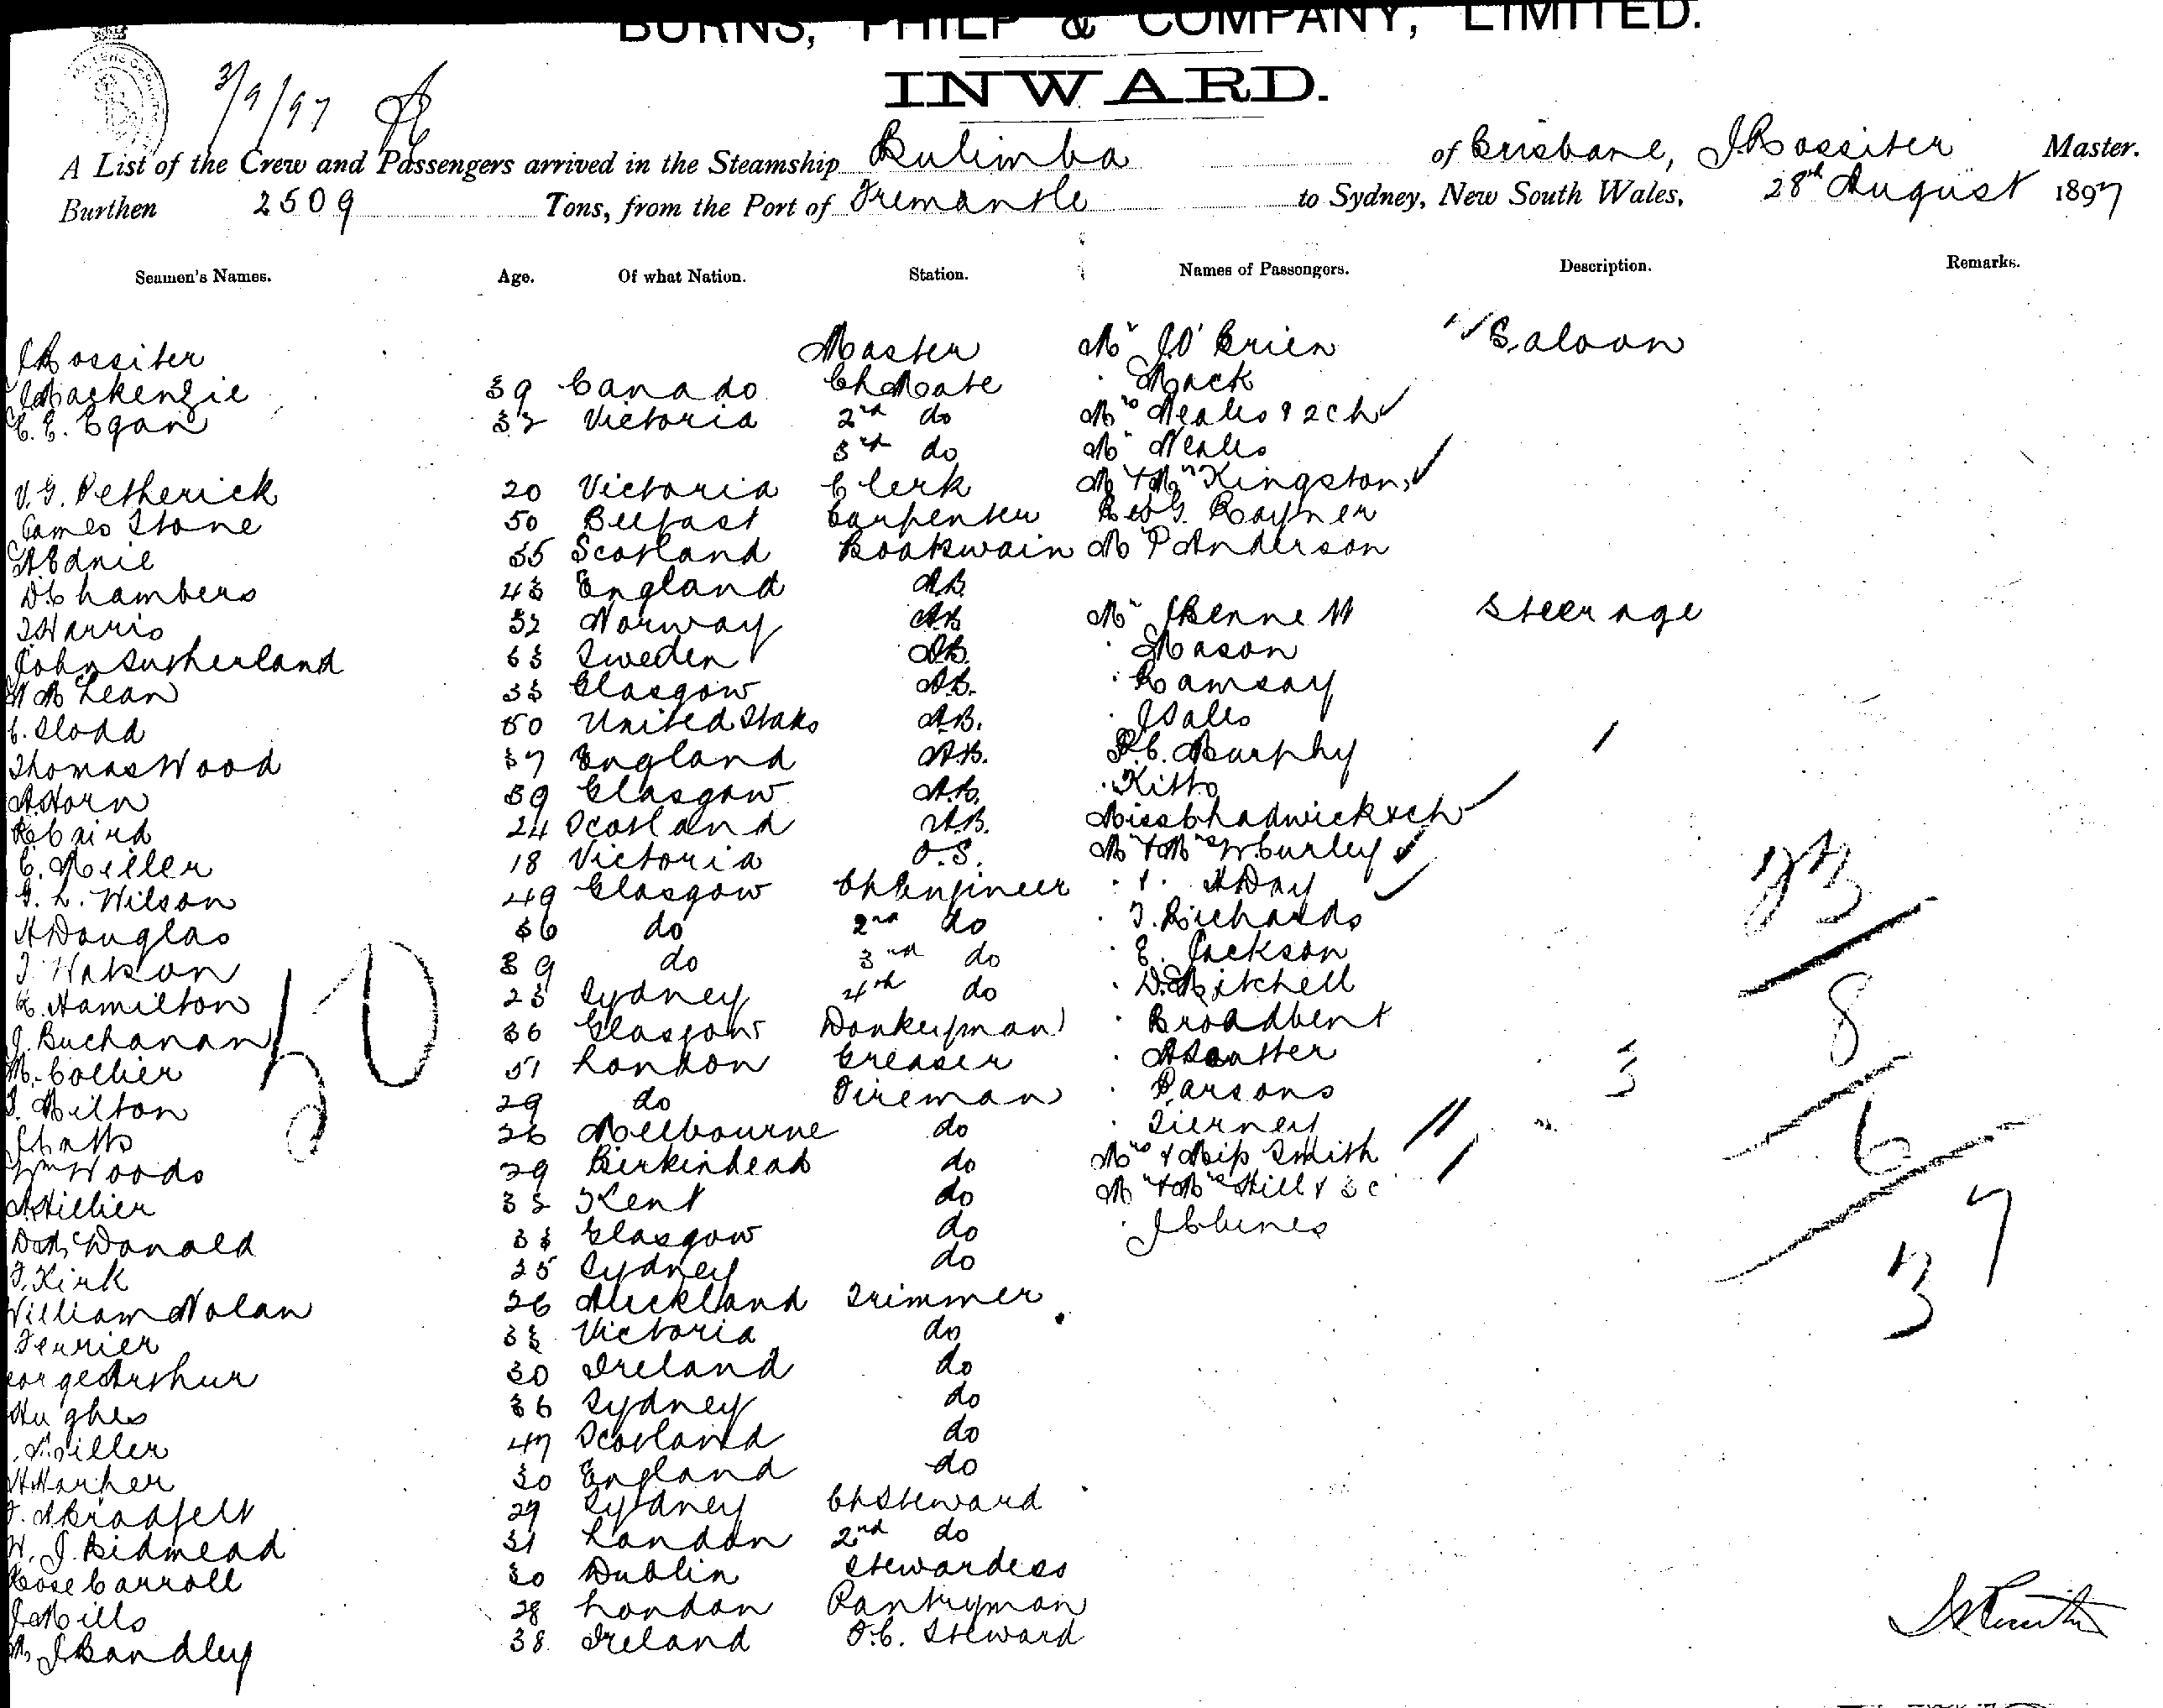 BURNS, PHILP & COMPANY, LIMITED.
INWARD.
3/9/97
A List of the Crew and Passengers arrived in the Steamship Bulimba of Brisbane, J Rossiter Master.
Burthen 2509 Tons, from the Port of Fremantle to Sydney, New South Wales, 28th August 1897
Seamen's Names. Age. Of what Nation. Station. Names of Passengers. Description. Remarks.
J Rossiter Master Mr J O'Brien Saloon
J Mackenzie 39 Canada Ch Mate " Mack
C. E. Egan 32 Victoria 2nd do Mrs Neales & 2 ch
3rd do Mr Neales
V. G. Petherick 20 Victoria Clerk Mr & Mrs Kingston
James Stone 50 Belfast Carpenter Rev G. Rayner
55 Scotland Boatswain Mr P Anderson
D Chambers 43 England AB
T Harris 32 Norway AB Mr J Bennett Steerage
John Sutherland 33 Sweden AB. " Mason
McLean 33 Glasgow AB. " Ramsay
C. Slodd 50 United States AB. " J Sales
Thomas Wood 37 England AB. P. C. Murphy
A Horn 39 Glasgow AB. " Kitto
R Caird 24 Scotland AB. Miss Chadwick & ch
C. Miller 18 Victoria O.S. Mr & Mrs W Curley
G. L. Wilson 49 Glasgow Ch Engineer " & " A Day
A Douglas 36 do 2nd do " T. Richards
T. Watson 39 do 3rd do " E. Jackson
Hamilton 23 Sydney 4th do " D. Mitchell
J. Buchanan 36 Glasgow Donkeyman " Broadbent
M. Collier 51 London Greaser "
Milton 29 do Fireman " Parsons
J Catts 26 Melbourne do " Tierney
Wm Woods 29 Birkinhead do Mrs & Miss Smith
A Hillier 33 Kent do Mr & Mrs Hill & 3 c
D McDonald 33 Glasgow do " J Clines
F. Kirk 25 Sydney do
William Nolan 26 Auckland Trimmer
Ferrier 33 Victoria do
eorge Arthur 30 Ireland do
Hughes 36 Sydney do
Miller 47 Scotland do
H Harher 30 England do
29 Sydney Ch Steward
W. J. Bidmead 31 London 2nd do
Rose Carroll 30 Dublin Stewardess
J Mills 28 London Pantryman
M J Bandley 38 Ireland F.C. Steward
50
23
8
6
7
3